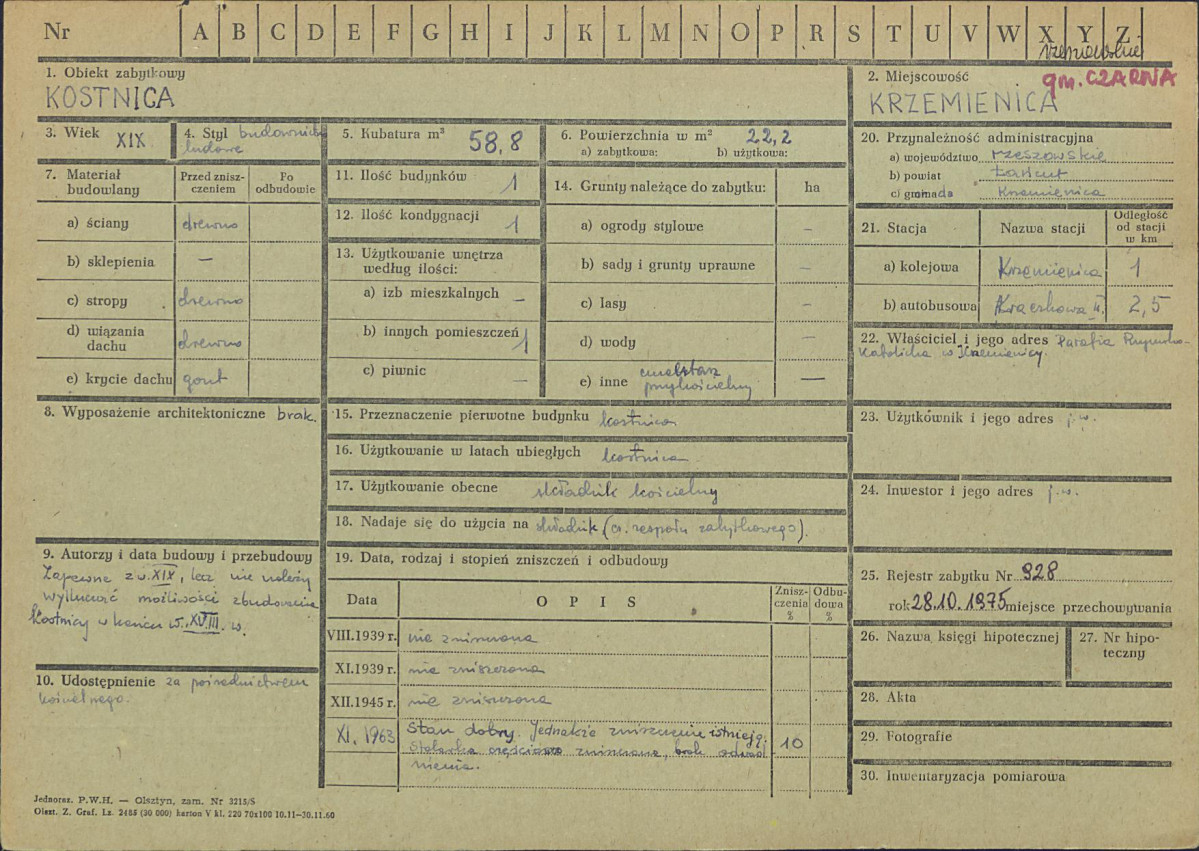 Nr A B C D E F G H I J K L M N O P R S T U V W X Y Z
1. Obiekt zabytkowy
KOSTNICA
2. Miejscowość
gm. CZARNA
KRZEMIENICA
3. Wiek XIX
4. Styl budownictwo
ludowe
5. Kubatura m³ 58,8
6. Powierzchnia w m² 22,2
a) zabytkowa: b) użytkowa:
7. Materiał
budowlany
Przed znisz-
czeniem
Po
odbudowie
a) ściany drewno
b) sklepienia —
c) stropy drewno
d) wiązania
dachu drewno
e) krycie dachu gont
8. Wyposażenie architektoniczne brak.
9. Autorzy i data budowy i przebudowy
Zapewne z w. XIX, lecz nie należy
wykluczać możliwości zbudowania
kostnicy w końcu w. XVIII. w.
10. Udostępnienie za pośrednictwem
kościelnego.
11. Ilość budynków 1
12. Ilość kondygnacji 1
13. Użytkowanie wnętrza
według ilości:
a) izb mieszkalnych —
b) innych pomieszczeń 1
c) piwnic —
14. Grunty należące do zabytku: ha
a) ogrody stylowe —
b) sady i grunty uprawne —
c) lasy —
d) wody —
e) inne cmentarz
przykościelny —
15. Przeznaczenie pierwotne budynku kostnica
16. Użytkowanie w latach ubiegłych kostnica
17. Użytkowanie obecne składzik kościelny
18. Nadaje się do użycia na składzik (cz. zespołu zabytkowego).
19. Data, rodzaj i stopień zniszczeń i odbudowy
Data OPIS
Znisz-
czenia
%
Odbu-
dowa
%
VIII.1939 r. nie zniszczona
XI.1939 r. nie zniszczona
XII.1945 r. nie zniszczona
XI. 1963 Stan dobry. Jednakże zniszczenie istnieją:
Stolarka częściowo zniszczona, brak odwod
nienia. 10
20. Przynależność administracyjna
a) województwo rzeszowskie
b) powiat Łańcut
c) gromada Krzemienica
21. Stacja Nazwa stacji
Odległość
od stacji
w km
a) kolejowa Krzemienica 1
b) autobusowa Kraczkowa II. 2,5
22. Właściciel i jego adres Parafia Rzymsko-
Katolicka w Krzemienicy.
23. Użytkownik i jego adres j.w.
24. Inwestor i jego adres j.w.
25. Rejestr zabytku Nr 828
rok 28.10.1975 miejsce przechowywania
26. Nazwa księgi hipotecznej
27. Nr hipo-
teczny
28. Akta
29. Fotografie
30. Inwentaryzacja pomiarowa
Jednoraz. P.W.H. — Olsztyn, zam. Nr 3215/S
Olszt. Z. Graf. Lz. 2485 (30 000) karton V kl. 220 70x100 10.11—30.11.60